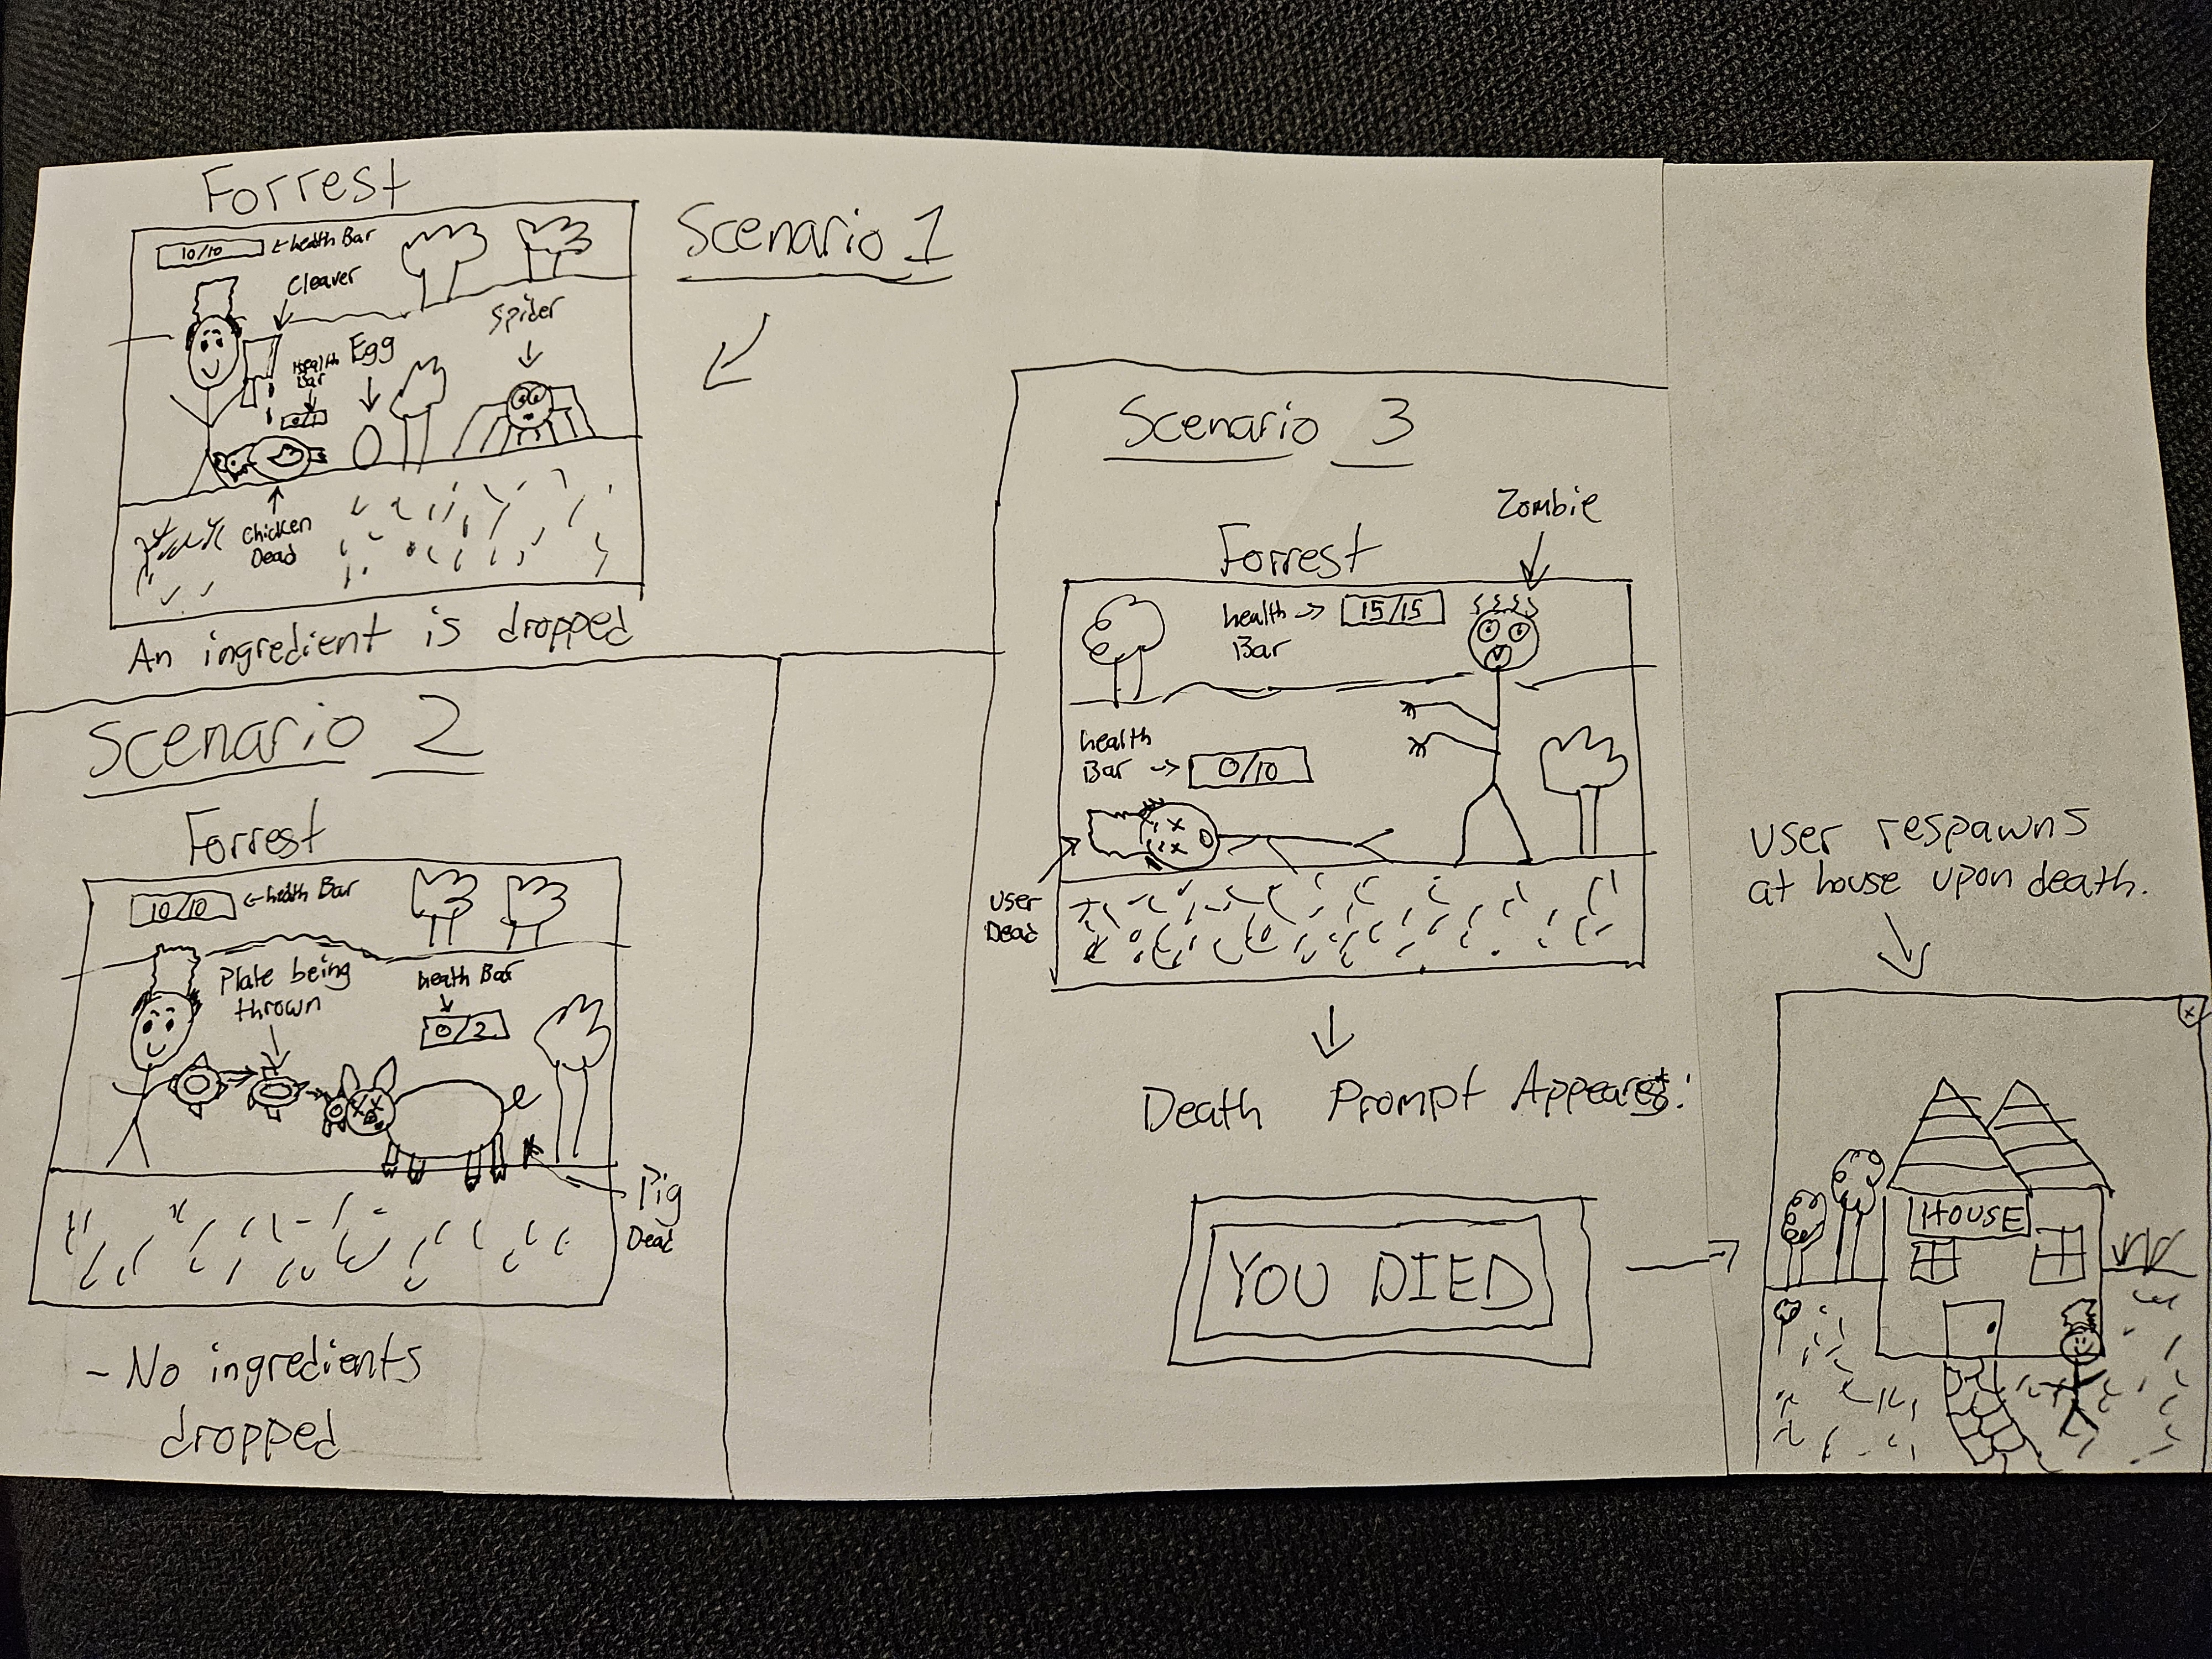 Forrest
Scenario 1
10/10
←health Bar
Cleaver
Spider
Health
Bar
Egg
0/1
Chicken
Dead
An ingredient is dropped
Scenario 2
Forrest
10/10
←health Bar
Plate being
thrown
health Bar
0/2
Pig
Dead
- No ingredients
dropped
Scenario 3
Zombie
Forrest
health →
Bar
15/15
health
Bar →
0/10
user
Dead
Death Prompt Appears:
YOU DIED
user respawns
at house upon death.
x
HOUSE